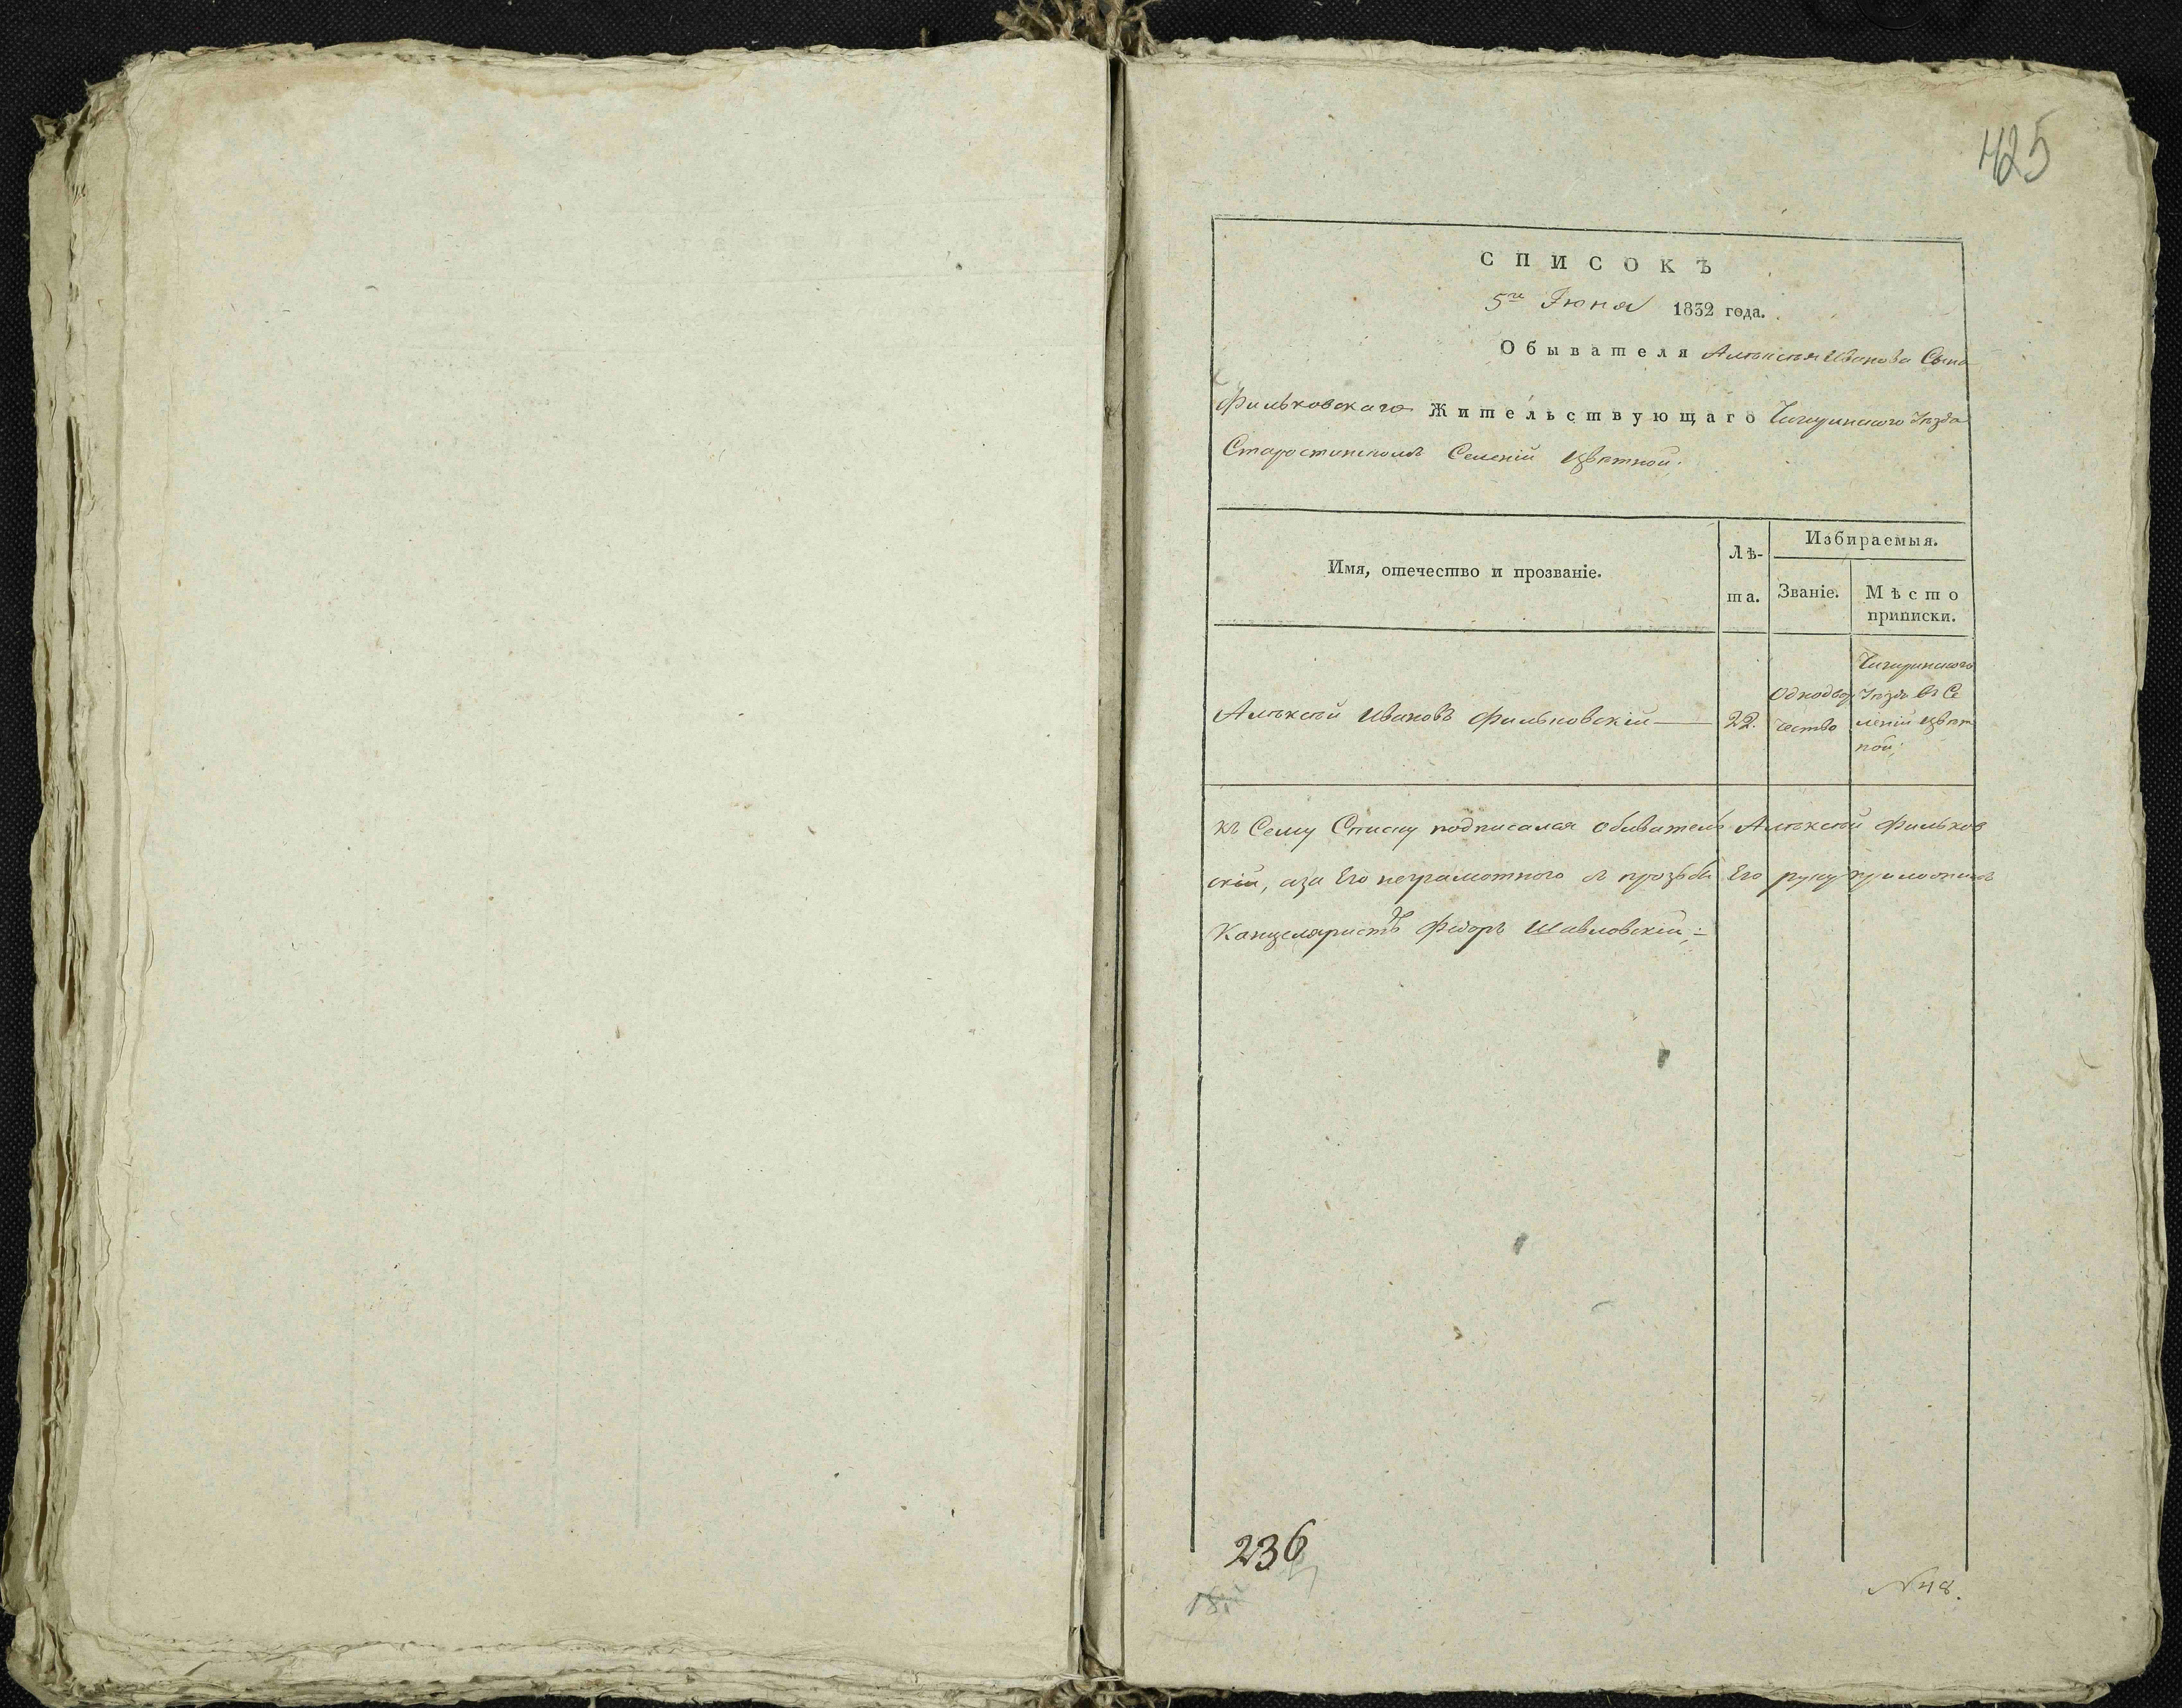 425
СПИСОКЪ
5го Іюня 1832 года.
Обывателя Алѣксѣя Иванова Сына
Фильковскаго Жительствующаго Чигиринского Уѣзда
Старостинскомъ Селеніи Цвѣтной.
Имя, отечество и прозваніе.
Лѣ-
та.
Избираемыя.
Званіе.
Мѣсто
приписки.
Алѣксѣй Ивановъ Фильковскій
22.
Однодвор
чество
Чигиринского
Уѣзда въ Се
леніи Цвѣт
ной;
къ Сему Списку подписался обыватель Алѣксѣй Фильков
скій, аза Его неграмотного съ прозьбы Его руку приложилъ
Канцеляристъ Федоръ Шавловскій;
236
18
N 48.